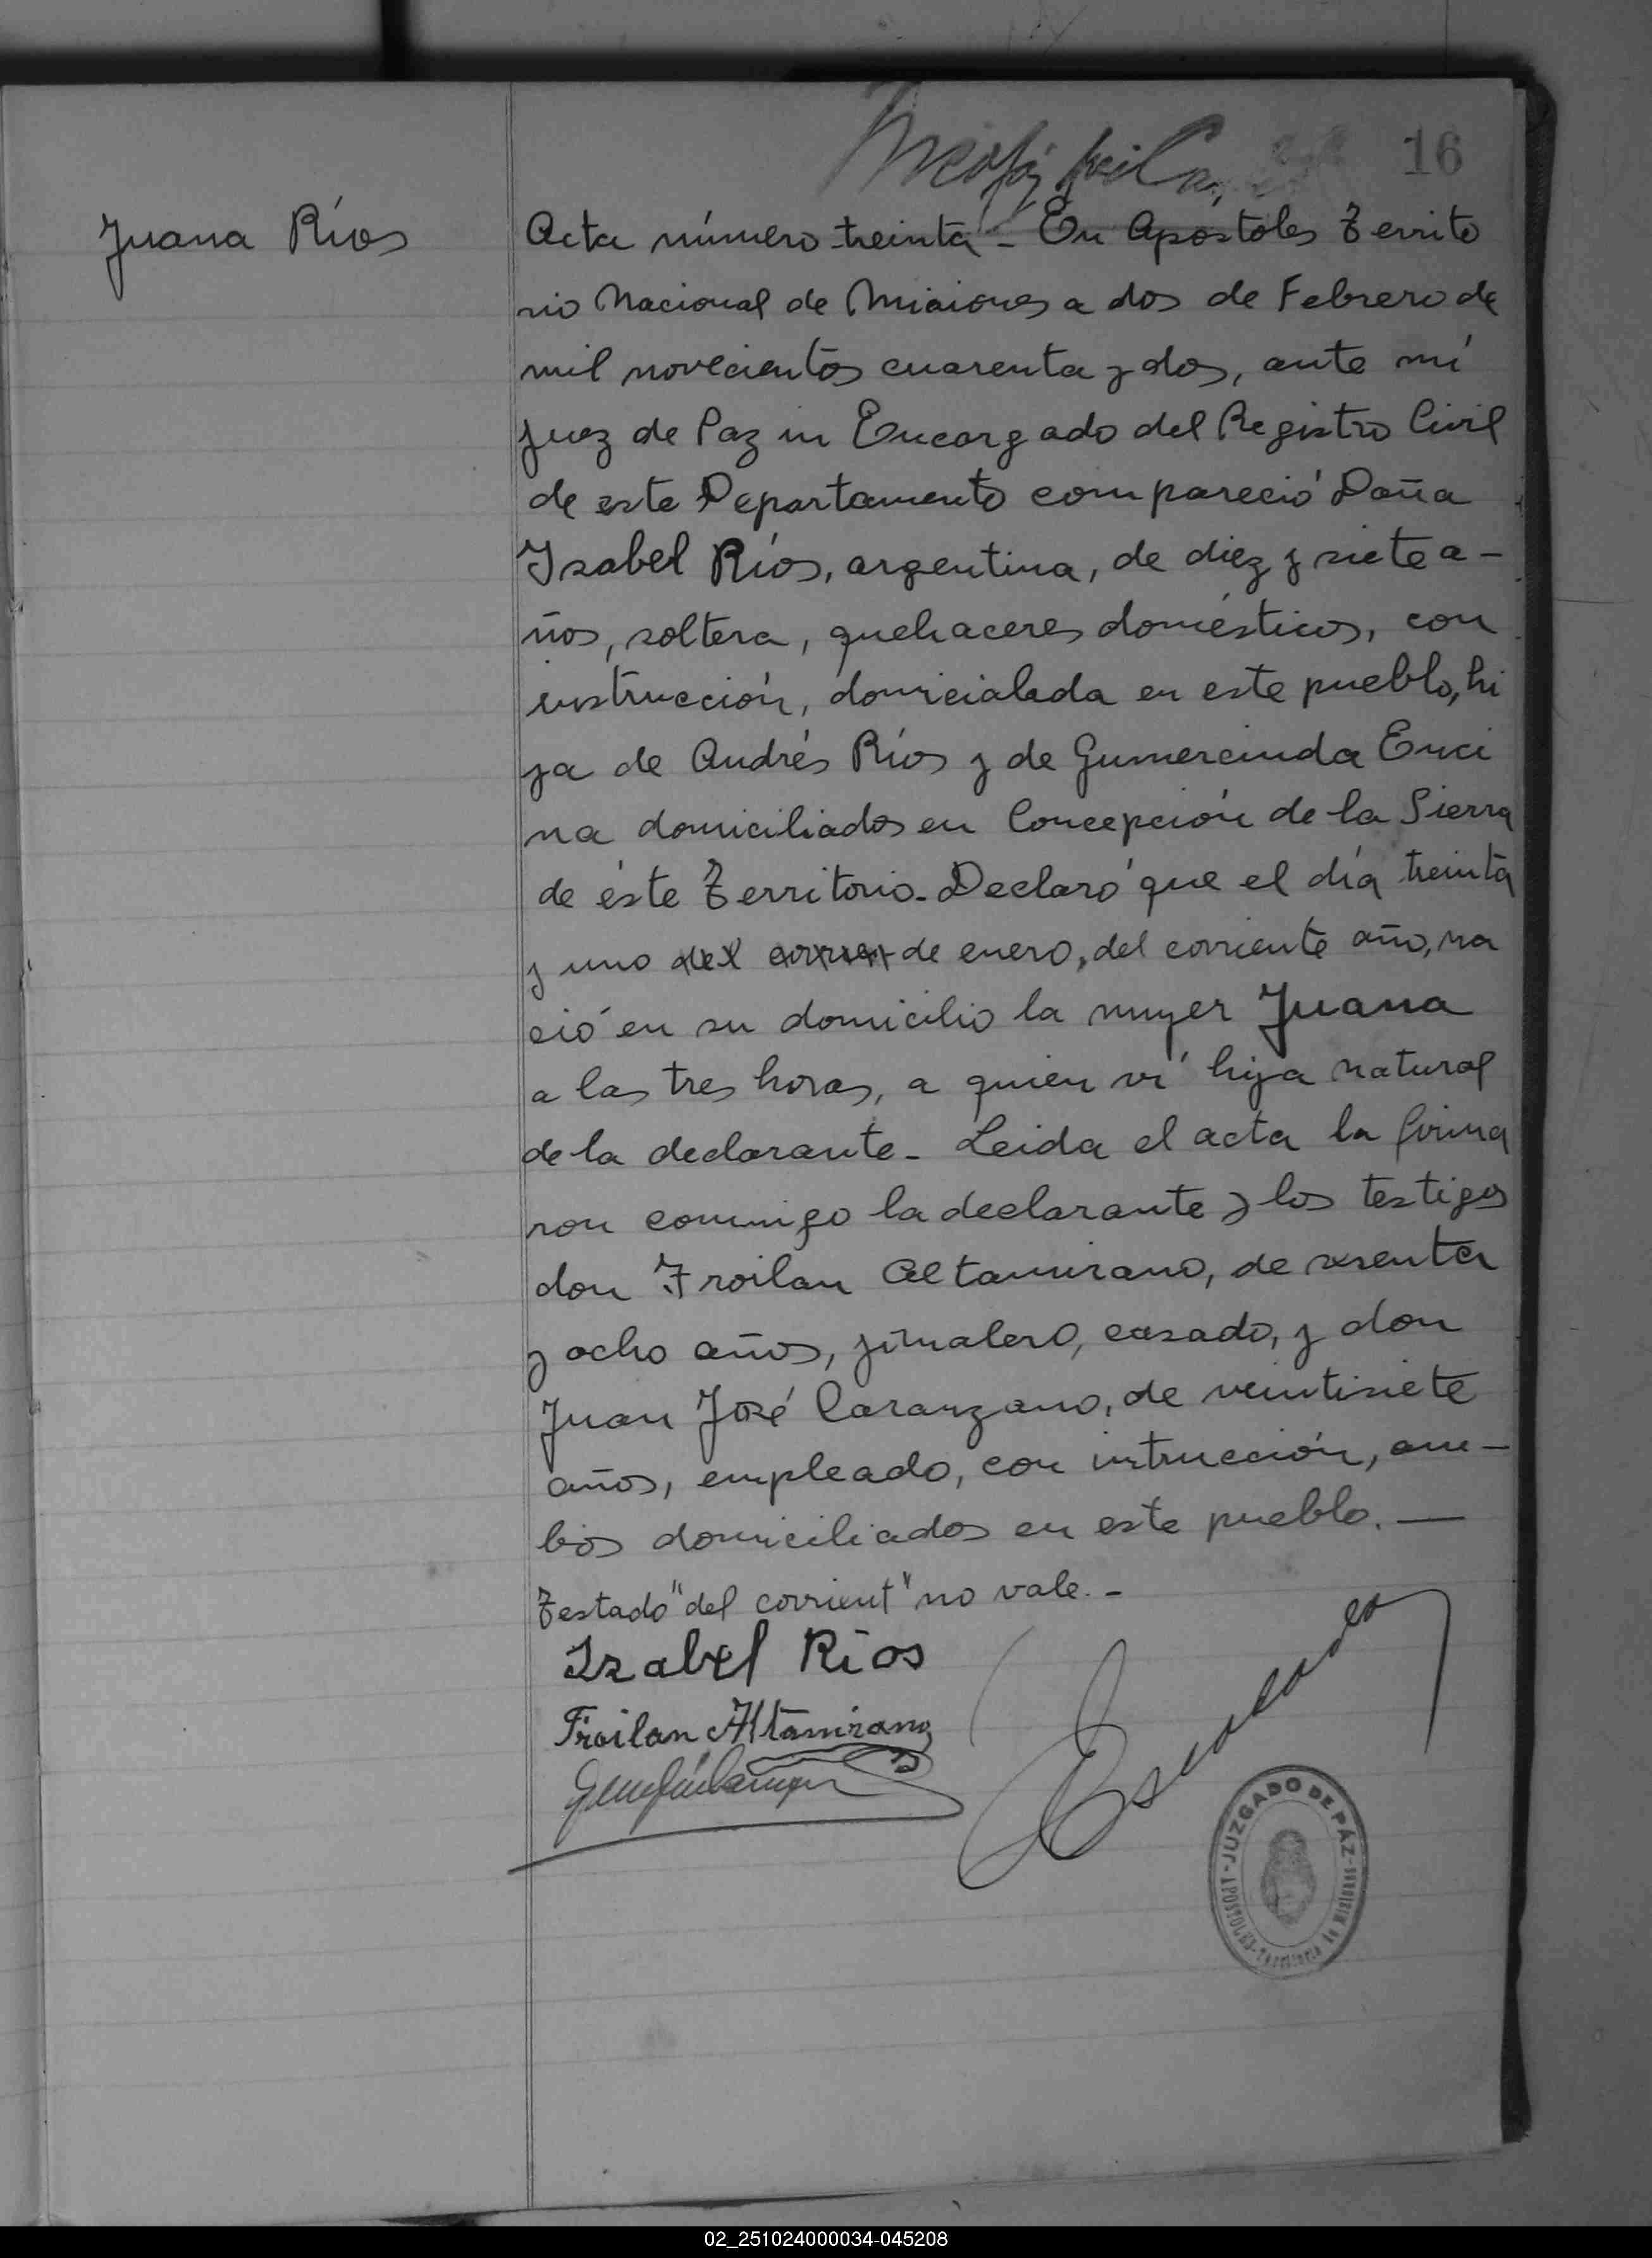 16
Juana Ríos
Acta número treinta - En Apóstoles Territo
rio Nacional de Misiones a dos de Febrero de
mil novecientos cuarenta y dos, ante mí
Juez de Paz in Encargado del Registro Civil
de este Departamento compareció Doña
Isabel Ríos, argentina, de diez y siete a-
ños, soltera, quehaceres domésticos, con
instrucción, domicialada en este pueblo, hi
ja de Andrés Ríos y de Gumercinda Enci
na domiciliados en Concepción de la Sierra
de éste Territorio. Declaró que el día treinta
y uno del corrient de enero, del corriente año, na
ció en su domicilio la mujer Juana
a las tres horas, a quien ví hija natural
de la declarante - Leida el acta la firma
ron conmigo la declarante y los testigos
don Froilan Altamirano, de sesenta
y ocho años, jornalero, casado, y don
Juan José Caranzano, de veintisiete
años, empleado, con intrucción, am-
bos domiciliados en este pueblo. —
Testado "del corrient" no vale. -
Izabel Rios
Froilan Altamirano
JUZGADO DE PÁZ
APOSTOLES - Territorio de Misiones
02_251024000034-045208